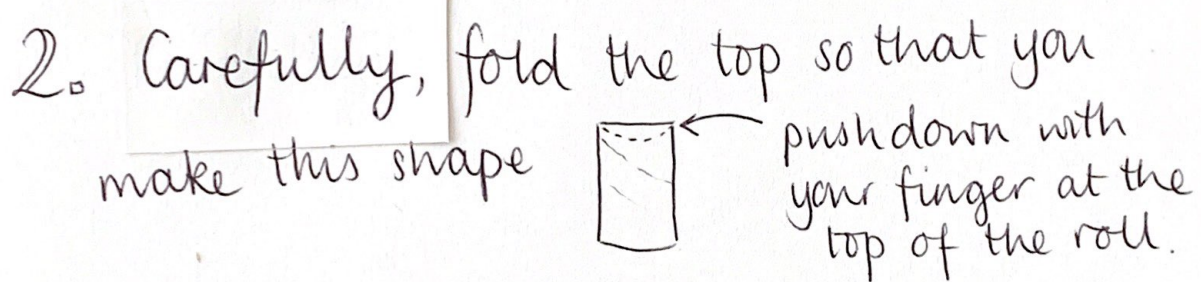 2. Carefully, fold the top so that you
make this shape
push down with
your finger at the
top of the roll.